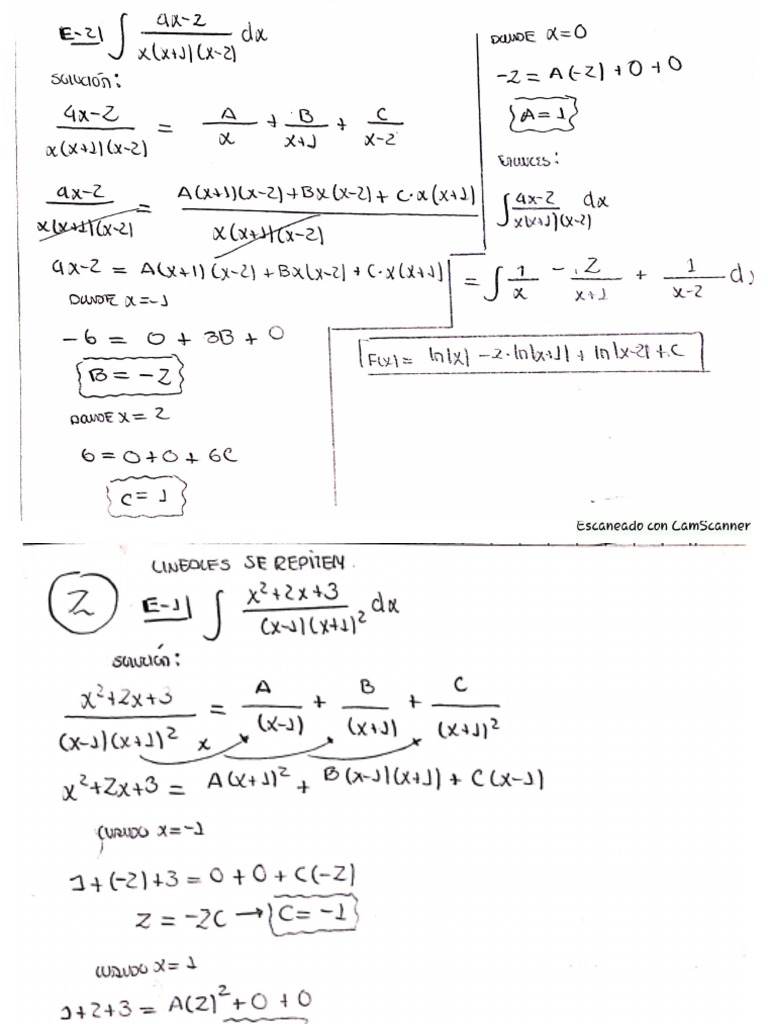 E-2) ∫ (4x-2)/(x(x+1)(x-2)) dx
SOLUCIÓN:
(4x-2)/(x(x+1)(x-2)) = A/x + B/(x+1) + C/(x-2)
(4x-2)/(x(x+1)(x-2)) = (A(x+1)(x-2)+Bx(x-2)+C·x(x+1))/(x(x+1)(x-2))
4x-2 = A(x+1)(x-2)+Bx(x-2)+C·x(x+1)
DONDE x=-1
-6 = 0 + 3B + 0
B = -2
DONDE x = 2
6 = 0+0+6C
C = 1
DONDE x=0
-2 = A(-2)+0+0
A = 1
ENTONCES:
∫ (4x-2)/(x(x+1)(x-2)) dx
= ∫ 1/x - 2/(x+1) + 1/(x-2) d
F(x) = ln|x| - 2·ln|x+1| + ln|x-2| + C
Escaneado con CamScanner
LINEALES SE REPITEN.
2 E-1) ∫ (x²+2x+3)/((x-1)(x+1)²) dx
SOLUCIÓN:
(x²+2x+3)/((x-1)(x+1)²) = A/(x-1) + B/(x+1) + C/(x+1)²
x²+2x+3 = A(x+1)² + B(x-1)(x+1) + C(x-1)
CUANDO x=-1
1+(-2)+3 = 0+0+C(-2)
2 = -2C → C = -1
CUANDO x=1
1+2+3 = A(2)²+0+0